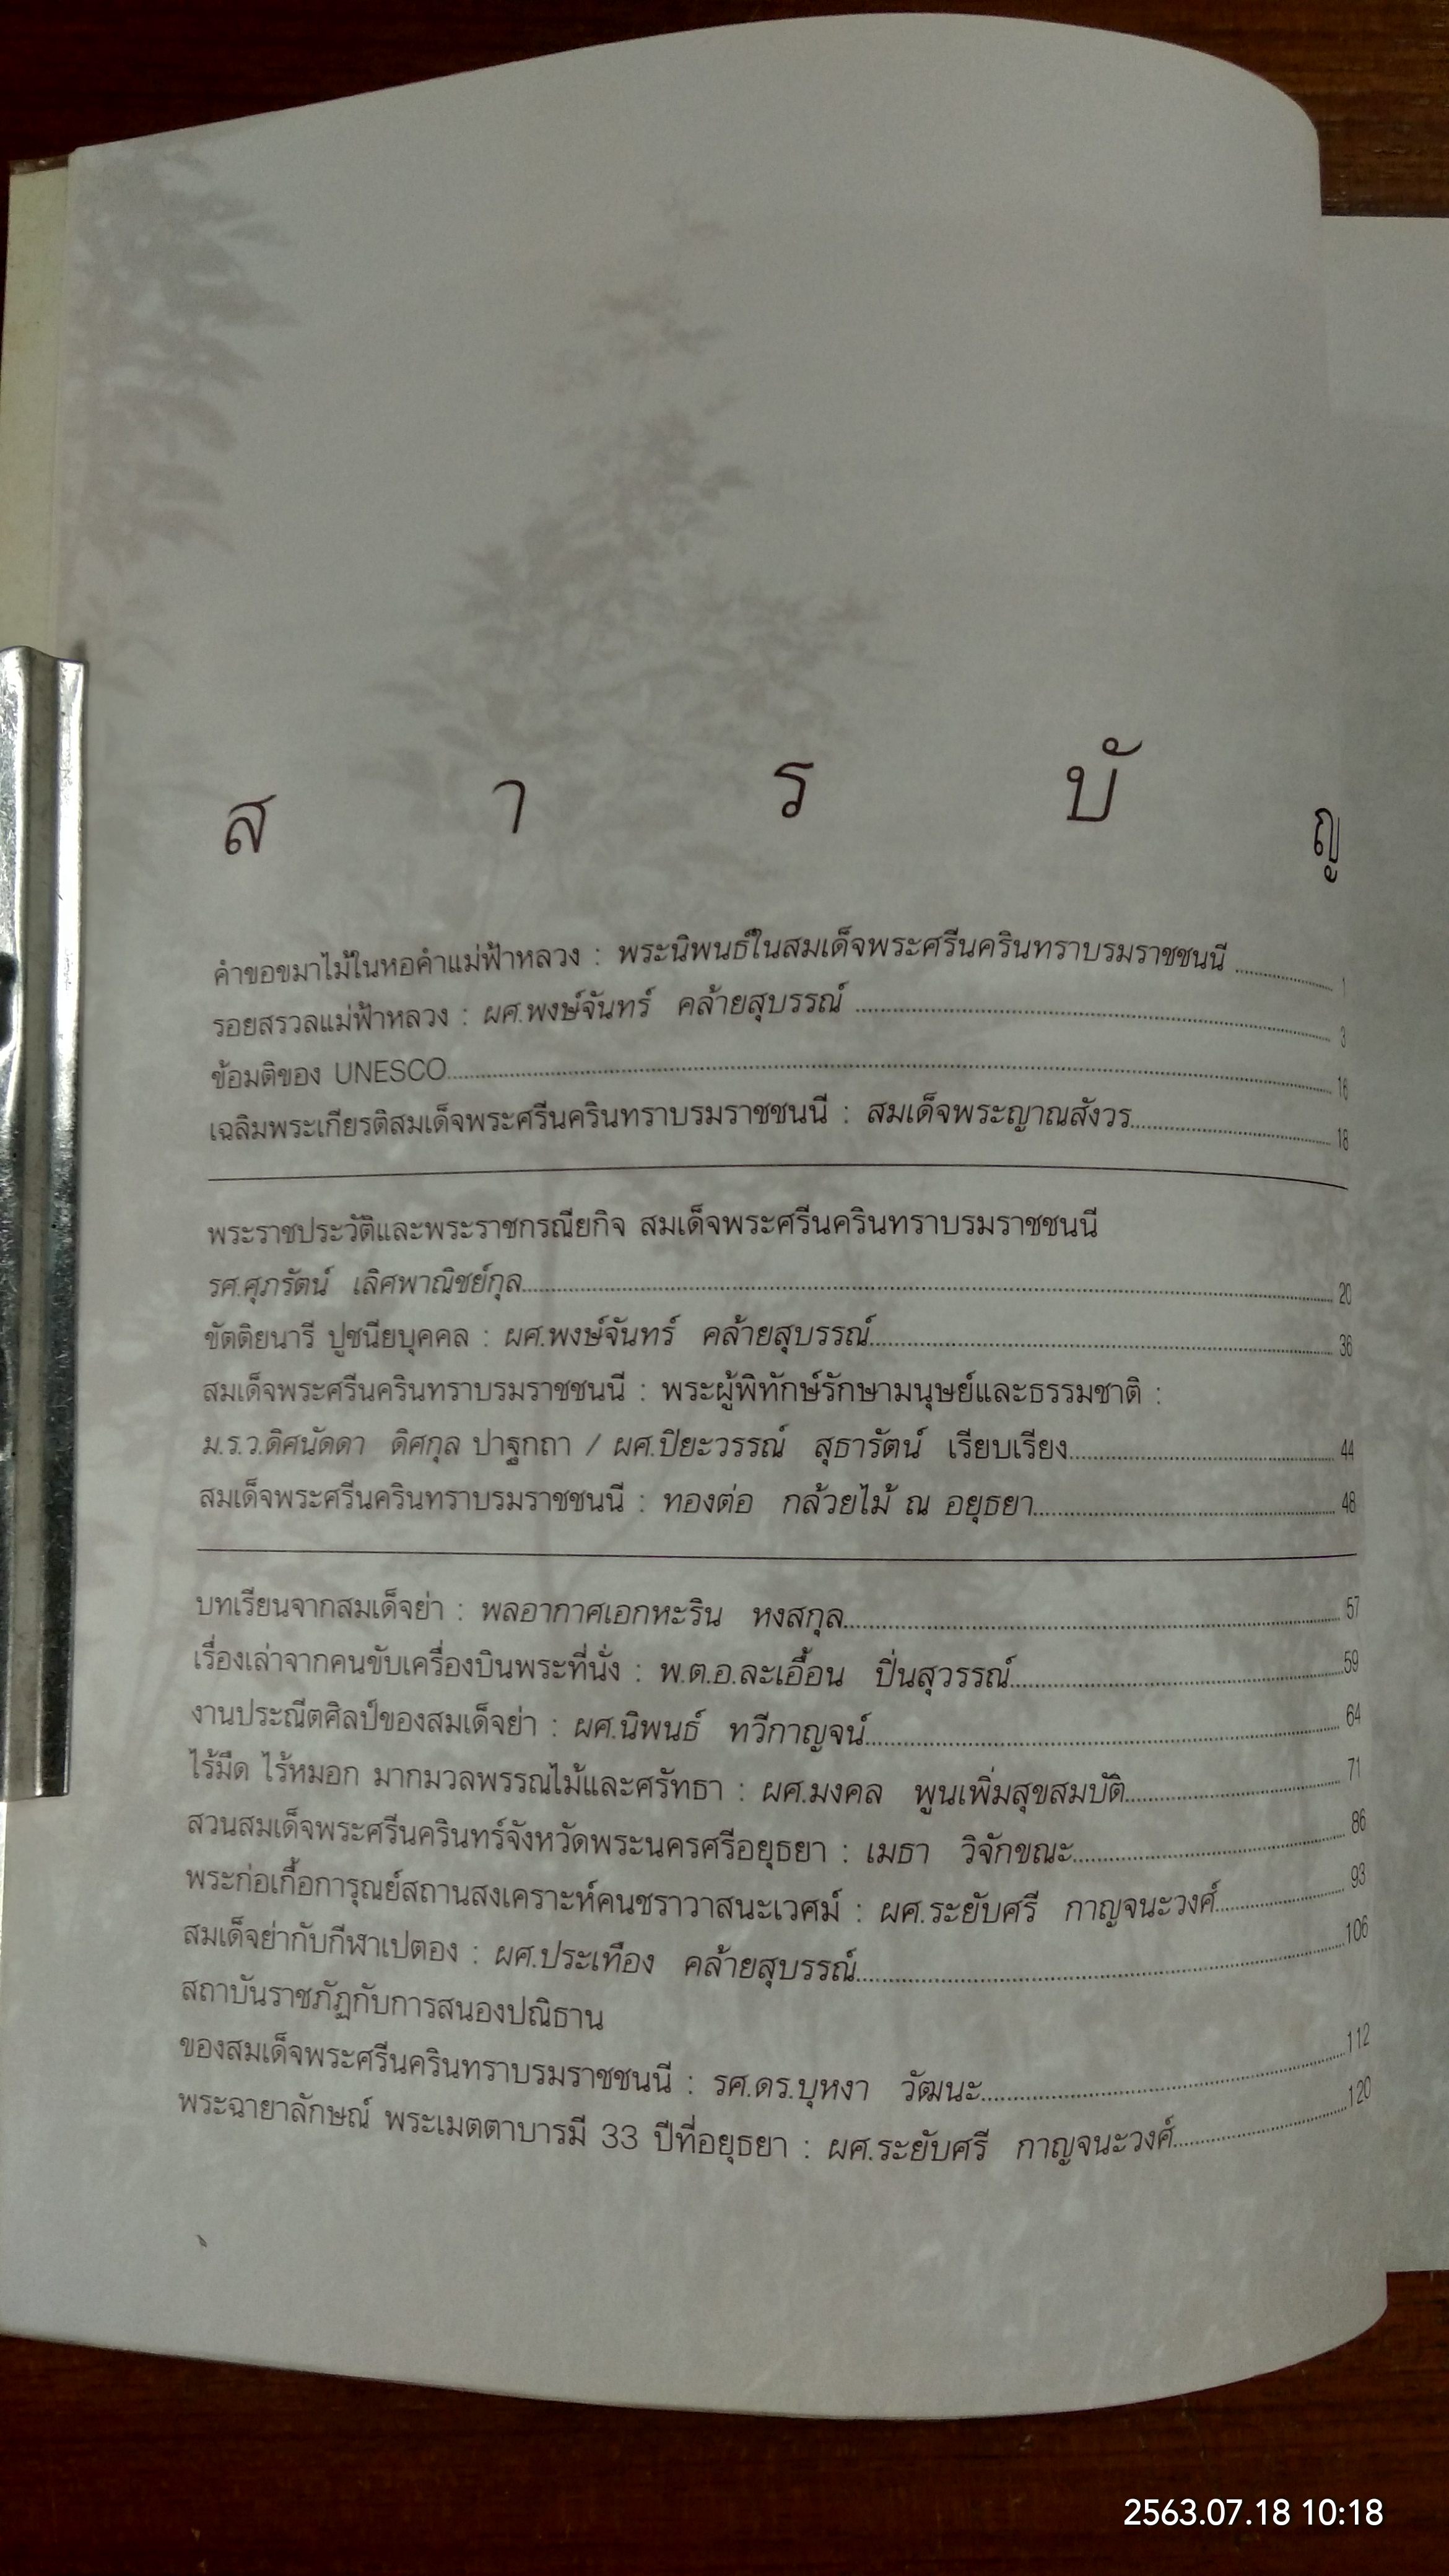 ส า ร บั ญ
คำขอขมาไม้ในหอคำแม่ฟ้าหลวง : พระนิพนธ์ในสมเด็จพระศรีนครินทราบรมราชชนนี ........ 1
รอยสรวลแม่ฟ้าหลวง : ผศ.พงษ์จันทร์ คล้ายสุบรรณ์ ........ 3
ข้อมติของ UNESCO........ 16
เฉลิมพระเกียรติสมเด็จพระศรีนครินทราบรมราชชนนี : สมเด็จพระญาณสังวร........ 18
พระราชประวัติและพระราชกรณียกิจ สมเด็จพระศรีนครินทราบรมราชชนนี
รศ.ศุภรัตน์ เลิศพาณิชย์กุล........ 20
ขัตติยนารี ปูชนียบุคคล : ผศ.พงษ์จันทร์ คล้ายสุบรรณ์........ 36
สมเด็จพระศรีนครินทราบรมราชชนนี : พระผู้พิทักษ์รักษามนุษย์และธรรมชาติ :
ม.ร.ว.ดิศนัดดา ดิศกุล ปาฐกถา / ผศ.ปิยะวรรณ์ สุธารัตน์ เรียบเรียง........ 44
สมเด็จพระศรีนครินทราบรมราชชนนี : ทองต่อ กล้วยไม้ ณ อยุธยา........ 48
บทเรียนจากสมเด็จย่า : พลอากาศเอกหะริน หงสกุล........ 57
เรื่องเล่าจากคนขับเครื่องบินพระที่นั่ง : พ.ต.อ.ละเอื้อน ปิ่นสุวรรณ์........ 59
งานประณีตศิลป์ของสมเด็จย่า : ผศ.นิพนธ์ ทวีกาญจน์........ 64
ไร้มืด ไร้หมอก มากมวลพรรณไม้และศรัทธา : ผศ.มงคล พูนเพิ่มสุขสมบัติ........ 71
สวนสมเด็จพระศรีนครินทร์จังหวัดพระนครศรีอยุธยา : เมธา วิจักขณะ........ 86
พระก่อเกื้อการุณย์สถานสงเคราะห์คนชราวาสนะเวศม์ : ผศ.ระยับศรี กาญจนะวงศ์........ 93
สมเด็จย่ากับกีฬาเปตอง : ผศ.ประเทือง คล้ายสุบรรณ์........ 106
สถาบันราชภัฏกับการสนองปณิธาน
ของสมเด็จพระศรีนครินทราบรมราชชนนี : รศ.ดร.บุหงา วัฒนะ........ 112
พระฉายาลักษณ์ พระเมตตาบารมี 33 ปีที่อยุธยา : ผศ.ระยับศรี กาญจนะวงศ์........ 120
2563.07.18 10:18